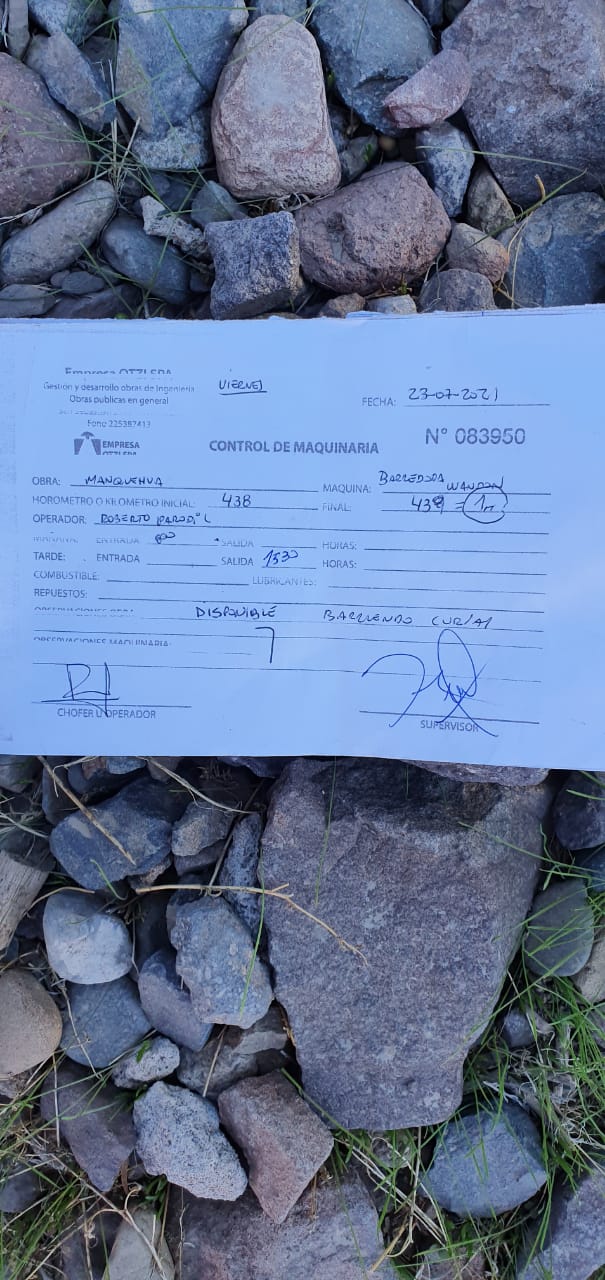 Empresa OTZI SPA
Gestión y desarrollo obras de Ingeniería
Obras publicas en general
Fono 225387413
VIERNES
FECHA: 23-07-2021
EMPRESA
CONTROL DE MAQUINARIA
N° 083950
OBRA: MANQUEHUA
MAQUINA: BARREDORA
HOROMETRO O KILOMETRO INICIAL: 438
FINAL: 439 = 1
OPERADOR: ROBERTO
MAÑANA: ENTRADA 800 SALIDA HORAS:
TARDE: ENTRADA SALIDA 1530 HORAS:
COMBUSTIBLE: LUBRICANTES:
REPUESTOS:
OBSERVACIONES OBRA: DISPONIBLE BARRIENDO
OBSERVACIONES MAQUINARIA:
CHOFER U OPERADOR
SUPERVISOR